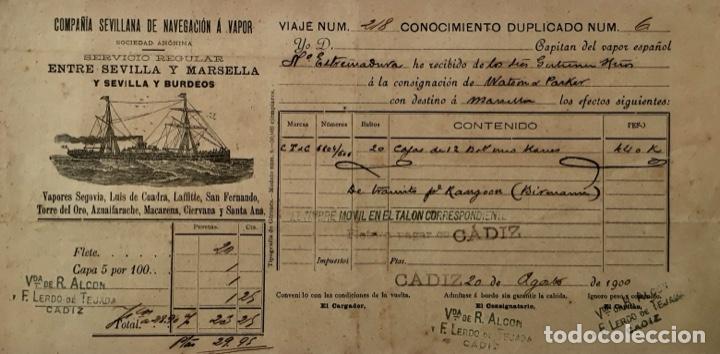 COMPAÑÍA SEVILLANA DE NAVEGACIÓN Á VAPOR
SOCIEDAD ANÓNIMA
SERVICIO REGULAR
ENTRE SEVILLA Y MARSELLA
Y SEVILLA Y BURDEOS
Vapores Segovia, Luis de Cuadra, Laffitte, San Fernando,
Torre del Oro, Aznalfarache, Macarena, Ciervana y Santa Ana.
Pesetas. Cts.
Flete. 20
Capa 5 por 100. 1
1
1 25
Total. 23 25
Ptas 29.95
Vda. DE R. ALCON
Y F. LERDO DE TEJADA
CADIZ
VIAJE NUM. 218 CONOCIMIENTO DUPLICADO NUM. 6
Yo D. Capitan del vapor español
Extremadura he recibido de los
á la consignación de Watson & Parker
con destino á Marsella los efectos siguientes:
Marcas Números Bultos CONTENIDO PESO
20 Cajas de 12 440 K
De transito pa Rangoon (Birmania)
TIMBRE MOVIL EN EL TALON CORRESPONDIENTE
CÁDIZ
Impuestos Ptas.
CADIZ 20 de Agosto de 1900
Convenido con las condiciones de la vuelta. Admitase á bordo sin garantir la calidad. Ignoro peso y
El Cargador. El Consignatario. El Capitán,
Vda. DE R. ALCON
Y F. LERDO DE TEJADA
CADIZ
Vda. DE R. ALCON
Y F. LERDO DE TEJADA
CADIZ
todocoleccion.net